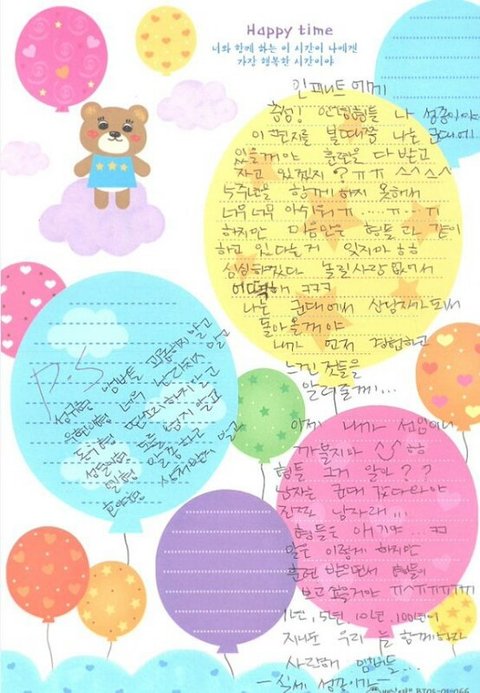 Happy time
너와 함께 하는 이 시간이 나에겐
가장 행복한 시간이야
인피니트에게
충성! 안녕형들 나 성종이야
이 편지를 볼때쯤 나는 군대에..
있을꺼야 훈련을 다 받고
자고 있겠지? ㅠㅠ ^^
주년을 함께하지 못해서
너무너무 아쉬워ㅠ ....ㅠ..ㅠ
하지만 마음만은 형들과 같이
하고 있다는거 잊지마 ㅎㅎ
심심하겠다 놀릴사람 없어서
어떡해 ㅋㅋㅋ
나는 군대에서 상남자가 되서
돌아올꺼야
내가 먼저 경험하고
느낀것들을
알려줄께!...
P.S
성규형
우현이형
동우형
성열이형
엘형
호야형
아자 내가 선임이니
까불지마 ㅎㅎ
형들 그거 알아??
남자는 군대 갔다와야
진짜 남자래...
형들은 애기야... ㅋㅋ
말은 이렇게 하지만
훈련 받으면서 형들이
보고싶을꺼야 ㅠㅅㅠㅠㅠㅠ
1년, 5년, 10년, 100년이
지나도 우리 늘 함께하자
사랑해 멤버들...